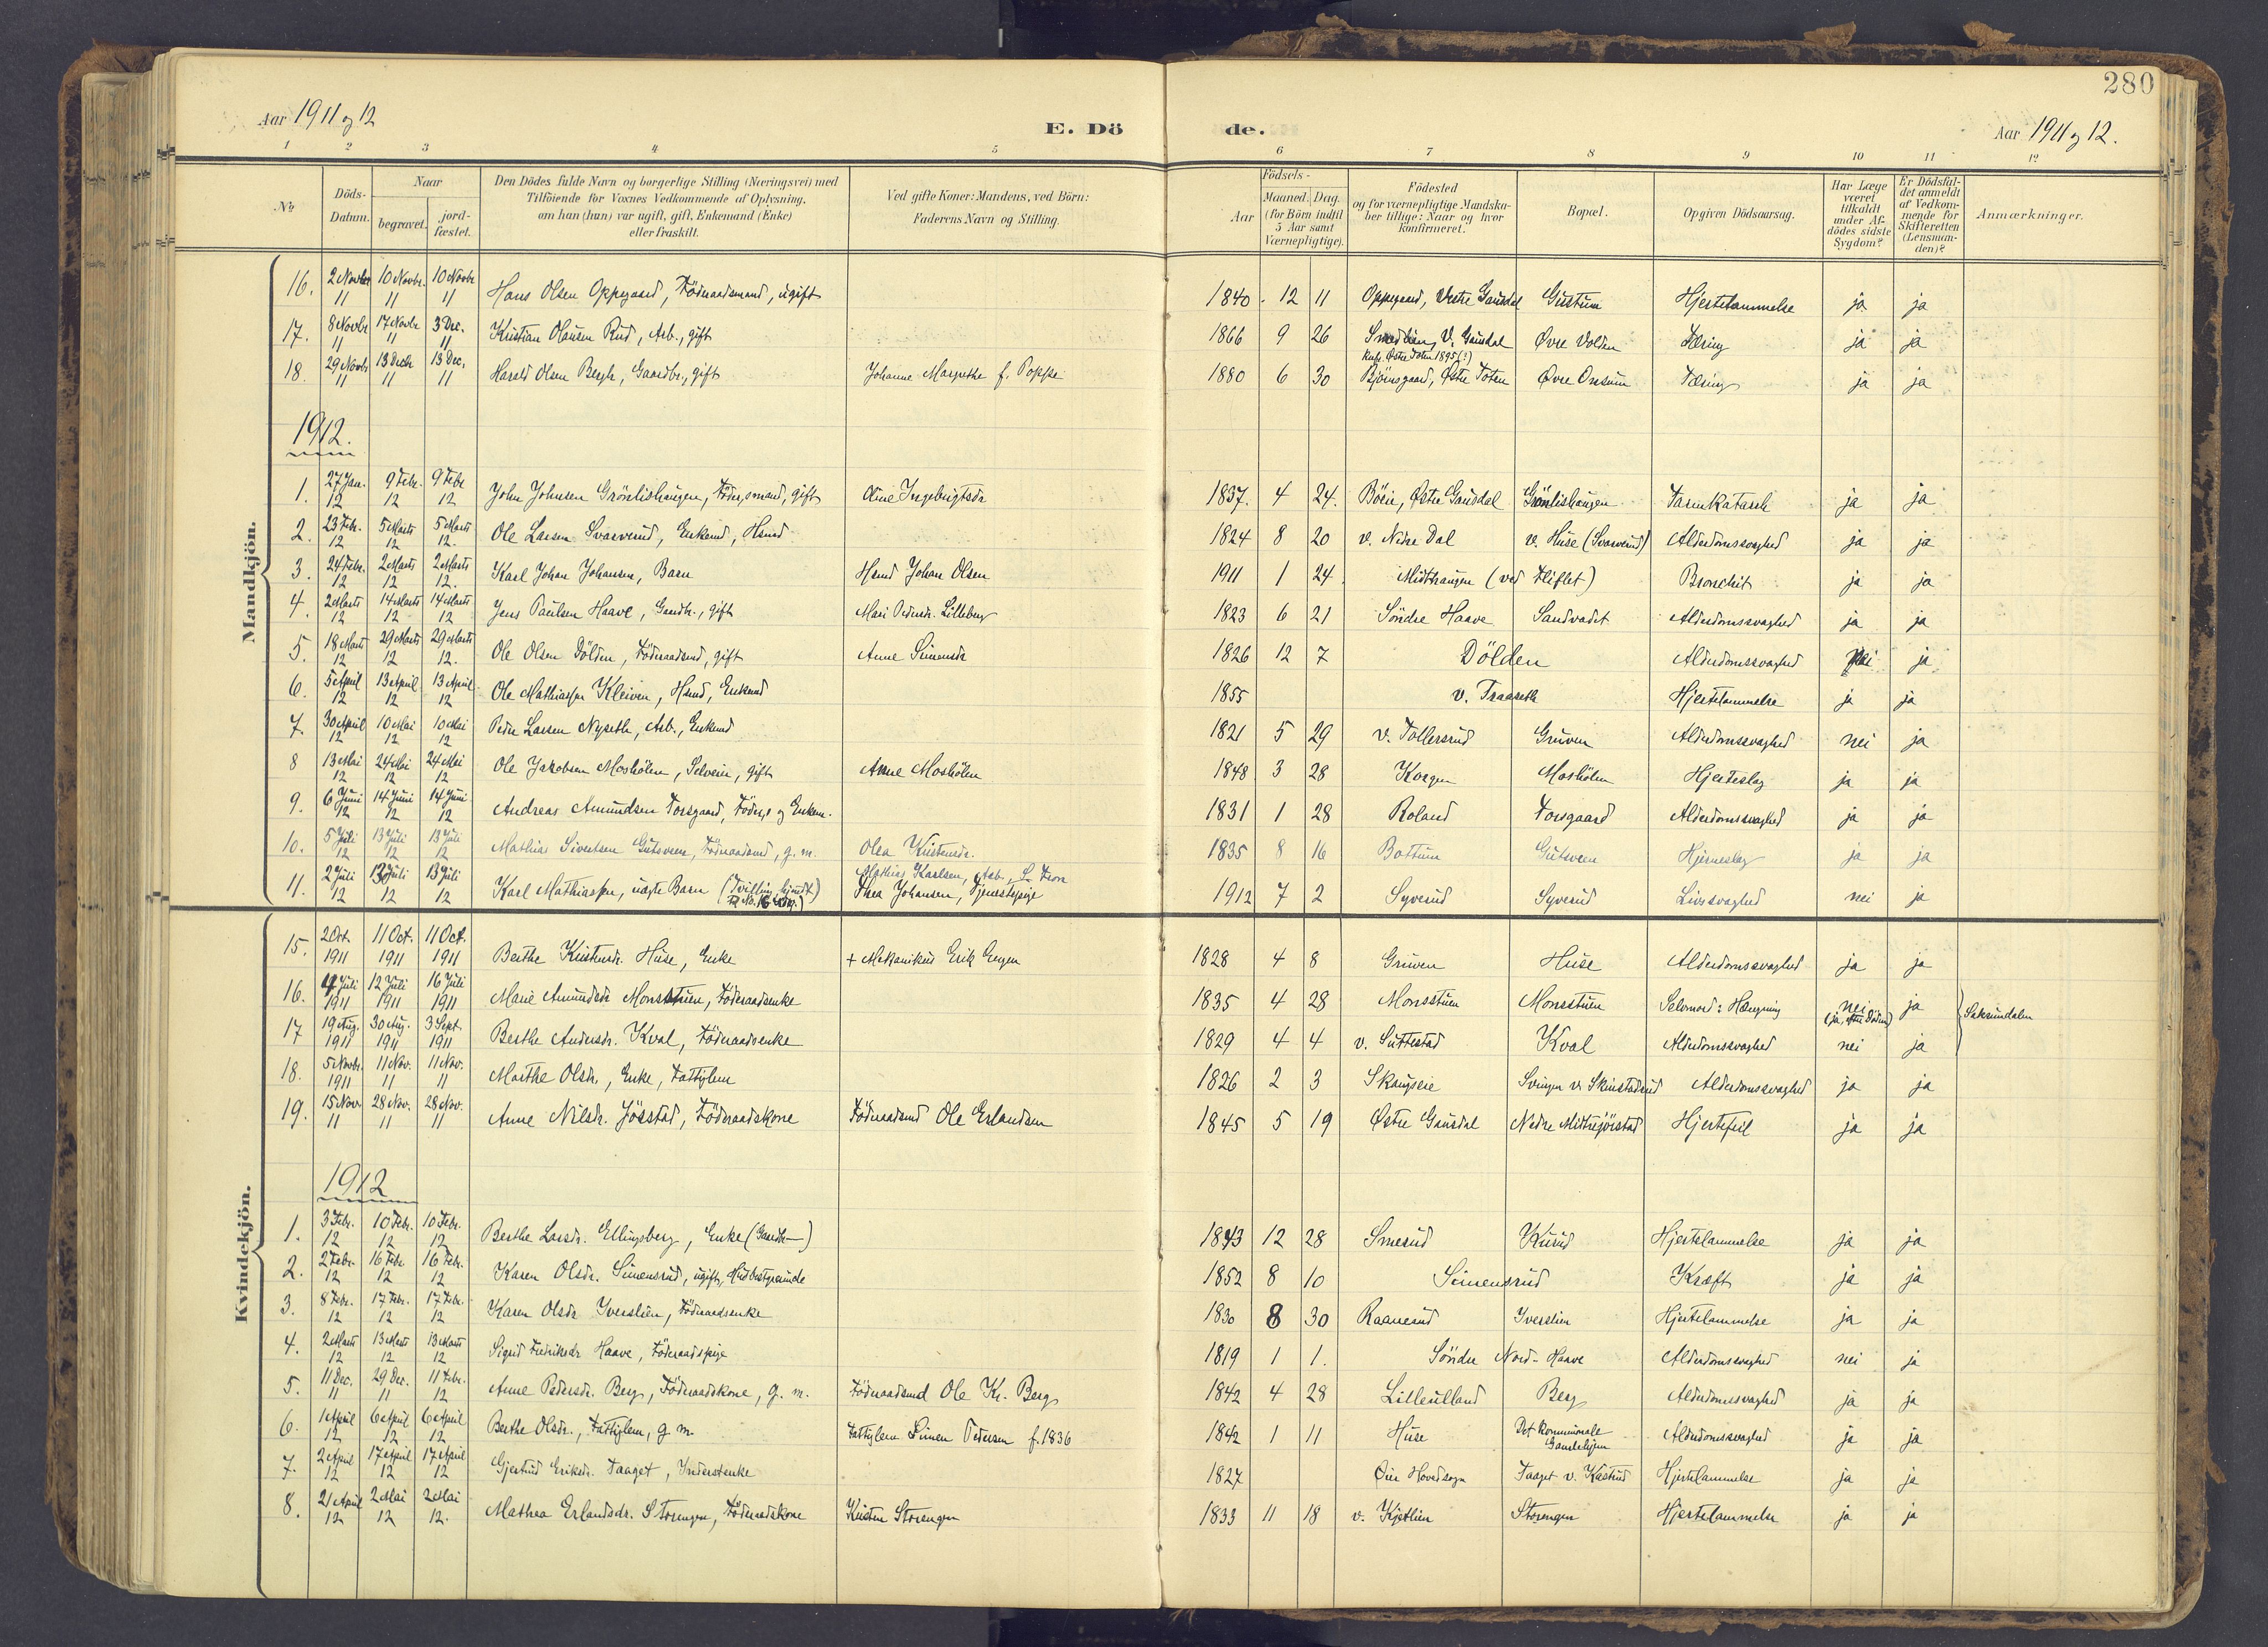 280
Aar 1911 og 12
E. Dö
de.
Aar 1911 og 12.
1 2 3 4 5 6 7 8 9 10 11 12
№
Döds-Datum.
Naar
begravet.
jord-fæstet.
Den Dödes fulde Navn og borgerlige Stilling (Næringsvei) med
Tilföiende for Voxnes Vedkommende af Oplysning,
om han (hun) var ugift, gift, Enkemand (Enke)
eller fraskilt.
Ved gifte Koner: Mandens, ved Börn:
Faderens Navn og Stilling.
Födsels-
Aar
Maaned. Dag.
(for Börn indtil
5 Aar samt
Værnepligtige).
Födested
og for værnepligtige Mandska-
ber tillige: Naar og hvor
konfirmeret.
Bopæl.
Opgiven Dödsaarsag.
Har Læge
været
tilkaldt
under Af-
dödes sidste
Sygdom?
Er Dödsfal-
det anmeldt
af Vedkom-
mende for
Skifteretten
(Lensman-
den)?
Anmærkninger.
Mandkjön.
16. 2 Novbr 11 10 Novbr. 11 10 Novbr 11 Hans Olsen Oppegaard, Föderaadsmand, ugift 1840 12 11 Oppegaard, Vestre Gausdal Gustum Hjertelammelse ja ja
17. 8 Novbr 11 17 Novbr 11 3 Dec. 11 Kristian Olausen Rud, Arb., gift 1866 9 26 Smedlien, V. Gausdal Øvre Volden Tæring ja ja
18. 29 Novbr 11 13 Decbr 11 13 Dec. 11 Harald Olsen Bergh, Gaardbr., gift Johanne Margrethe f. Poppe 1880 6 30 Konf. Østre Toten 1895 (?) Björnsgaard, Østre Toten Øvre Onsum Tæring ja ja
1912.
1. 27 Jan. 12 9 Febr. 12 9 Febr 12 John Johnsen Grönlishaugen, Föder,smand, gift Oline Ingebrigtsdr 1837. 4 24. Böen, Østre Gausdal Grönlishaugen Tarmkatarrh ja ja
2. 23 Febr. 12 5 Marts 12 5 Marts 12. Ole Larsen Svarverud, Enkemd, Hsmd 1824 8 20 v. Nedre Dal v. Huse (Svarverud) Alderdomssvaghed ja ja
3. 24 Febr. 12 2 Marts 12 2 Marts 12. Karl Johan Johansen, Barn Hsmd Johan Olsen 1911 1 24. Midthaugen (ved Fliflet) Bronchit ja ja
4. 2 Marts 12 14 Marts 12 14 Marts 12 Jens Paulsen Haave, Gaardbr., gift Mari Pedersdr. Lilleberg 1823 6 21 Söndre Haave Sandvadet Alderdomssvaghed ja ja
5. 18 Marts 12 29 Marts 12 29 Marts 12. Ole Olsen Dölden, Föderaadsmd, gift Anne Simensdr 1826 12 7 Dölden Alderdomssvaghed nei ja
6. 5 April 12 13 April 12 13 April 12 Ole Mathiassen Kleiven, Hsmd, Enkemd 1855 v. Traaseth Hjertelammelse ja ja
7. 30 April 12 10 Mai 12 10 Mai 12 Peder Larsen Nyseth, Arb., Enkemd 1821 5 29 v. Tollersrud Gruven Alderdomssvaghed nei ja
8 13 Mai 12 24 Mai 12 24 Mai 12 Ole Jakobsen Moshölen, Selveier, gift Anne Moshölen 1848 3 28 Korgen Moshölen Hjerteslag ja ja
9. 6 Juni 12 14 Juni 12 14 Juni 12 Andreas Amundsen Torsgaard, Föder,s og Enkem. 1831 1 28 Roland Torsgaard Alderdomssvaghed ja ja
10. 5 Juli 12 13 Juli 12 13 Juli 12 Mathias Sivertsen Gutsveen, Föderaadsmd, g. m. Olea Kristensdr. 1835 8 16 Bottum Gutsveen Hjerneslag ja ja
11. 2 Juli 12 13 Juli 12 13 Juli 12 Karl Mathiassen, uægte Barn (Tvilling Mathias Karlsen, Arb., S. Fron Thea Johansen, Tjenestepige 1912 7 2 Syverud Syverud Livssvaghed nei ja
Kvindekjön.
15. 2 Oct. 1911 11 Oct. 1911 11 Oct. 1911 Berthe Kristensdr. Huse, Enke + Mekanikus Erik Engen 1828 4 8 Gruven Huse Alderdomssvaghed ja ja
16. 4 Juli 1911 12 Juli 1911 16 Juli 1911 Marie Amundsdr Monsstuen, Föderaadsenke 1835 4 28 Monsstuen Monsstuen Selvmord: Hængning nei (ja, efter Döden) ja Saksumdalen
17 19 Aug. 1911 30 Aug. 1911 3 Sept. 1911 Berthe Andersdr. Kval, Föderaadsenke 1829 4 4 v. Suttestad Kval Alderdomssvaghed nei ja
18. 5 Novbr. 1911 11 Nov. 11 11 Nov. 11 Marthe Olsdr., Enke, Fattiglem 1826 2 3 Skaugseie Svingen v. Skinstadrud Alderdomssvaghed ja ja
19. 15 Nov 11 28 Nov. 11 28 Nov. 11 Anne Nilsdr. Jösstad, Föderaadskone Föderaadsmd Ole Erlandsen 1845 5 19 Østre Gausdal Nedre Midtrejörstad Hjertefeil ja ja
1912
1. 3 Febr. 12 10 Febr. 12 10 Febr. 12 Berthe Larsdr. Ellingsberg, Enke (Gaardbr—) 1843 12 28 Smerud Kurud Hjertelammelse ja ja
2. 2 Febr. 12 16 Febr. 12 16 Febr. 12 Karen Olsdr. Simensrud, ugift, Husbestyrerinde 1852 8 10 Simensrud Kræft ja ja
3. 8 Febr. 12 17 Febr. 12 17 Febr. 12 Karen Olsdr Iverslien, Föderaadsenke 1830 8 30 Raanerud Iverslien Hjertelammelse ja ja
4. 2 Marts 12 13 Marts 12 13 Marts 12 Sigrid Fredriksdr Haave, Föderaadspige 1819 1 1. Söndre Nord-Haave Alderdomssvaghed nei ja
5. 11 Dec. 11 29 Dec. 11 11 Febr. 12 Anne Pedersdr. Berg, Föderaadskone, g. m. Föderaadsmd Ole Kr. Berg 1842 4 28 Lilleulland Berg Alderdomssvaghed ja ja
6. 1 April 12 6 April 12 6 April 12 Berthe Olsdr., Fattiglem, g m. Fattiglem Simen Pedersen f. 1836 1842 1 11 Huse Det kommunale Gamlehjem Alderdomssvaghed ja ja
7. 2 April 12 17 April 12 17 April 12 Gjertrud Eriksdr. Taaget, Inderstenke 1827 Öier Hovedsogn Taaget v. Kastrud Hjertelammelse ja ja
8. 21 April 12 2 Mai 12 2 Mai 12. Mathea Erlandsdr. Storengen, Föderaadskone Kristen Storengen 1833 11 18 v. Kjetlien Storengen Hjertelammelse ja ja